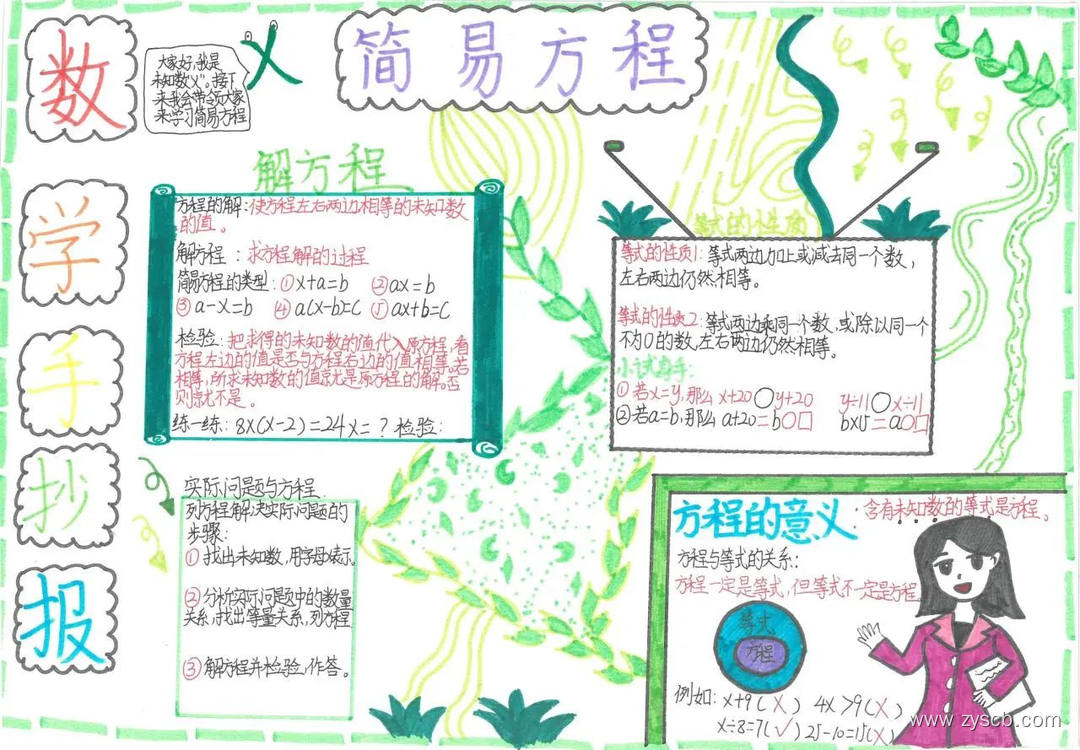 数
学
手
抄
报
大家好,我是
未知数"X"。接下
来我会带领大家
来学习简易方程
X
简易方程
解方程
方程的解:使方程左右两边相等的未知数
的值。
解方程：求方程解的过程
简易方程的类型：①x+a=b ②ax=b
③a-x=b ④a(x-b)=c ⑤ax+b=c
检验：把求得的未知数的值代入原方程,看
方程左边的值是否与方程右边的值相等。若
相等,所求未知数的值就是原方程的解。否
则就不是。
练一练：8×(x-2)=24 x=？检验：
等式的性质
等式的性质1：等式两边加上或减去同一个数，
左右两边仍然相等。
等式的性质2：等式两边乘同一个数,或除以同一个
不为0的数,左右两边仍然相等。
小试身手：
①若x=y,那么 x+20○y+20 y÷11○x÷11
②若a=b,那么 a+20=b○□ b×15=a○□
实际问题与方程
列方程解决实际问题的
步骤：
①找出未知数,用字母表示。
②分析实际问题中的数量
关系,找出等量关系,列方程
③解方程并检验,作答。
方程的意义
含有未知数的等式是方程。
方程与等式的关系：
方程一定是等式,但等式不一定是方程
等式
方程
例如：x+9(X) 4x>9(X)
x÷8=7(√) 25-10=15(X)
www.zyscb.com